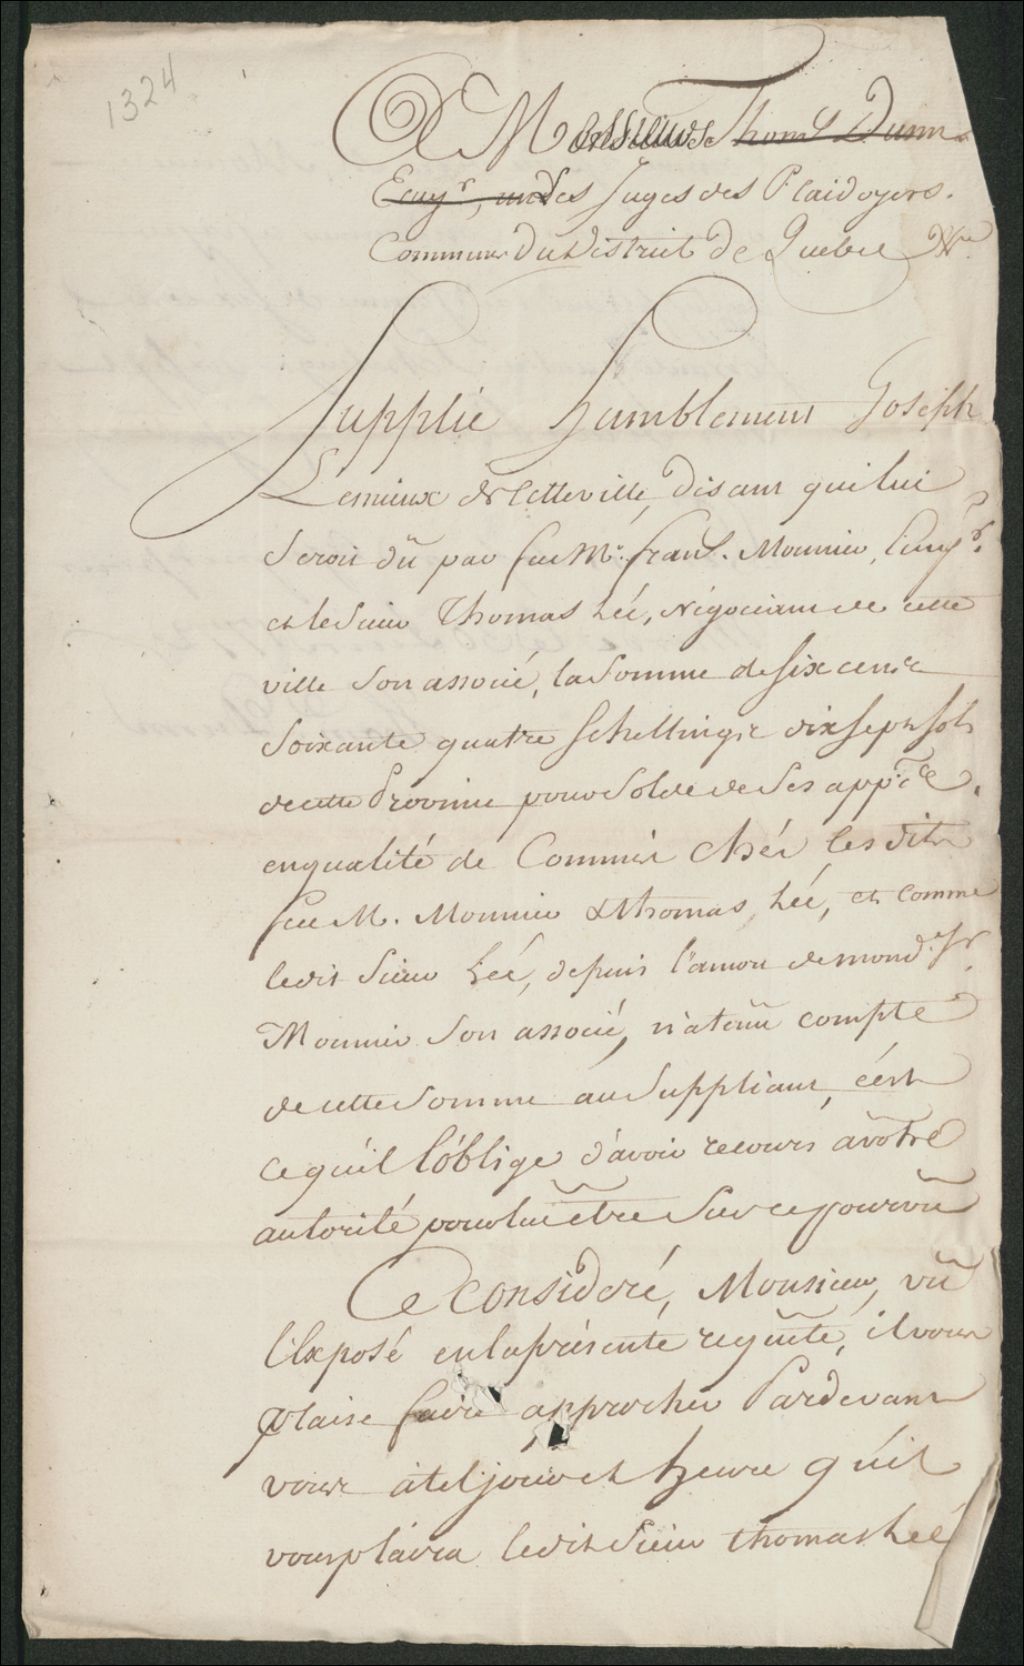 1324
A Messieurs Thoms Dunn
Ecuyr, un des Juges des Plaidoyers.
Communs Du District De Quebec &ca
Supplie humblement Joseph
Lemieux de cette ville, disant qui lui
Seroit dû par feu Mr. frans. Mounier, Ecuyr.
et le Sieur Thomas Leé, Négociant de cette
ville Son associé, la Somme de Six cents
Soixante quatre Schellings dix Sept Sols
de cette Province pour Solde de Ses appts.
en qualité de Commis chés les dits
feu M. Mounier & thomas Leé, et comme
le dit Sieur Leé, depuis la mort de mond. Sr.
Mounier Son associé, n'a tenu compte
de cette Somme au Suppliant, c'est
ce qu'il L'oblige d'avoir recours a vôtre
autorité pour lui être Sur ce pourvû
Ce Consideré, Monsieur, vû
l'Exposé en la présente requête, il vous
plaise faire approcher Pardevant
vous à tel jour et heure qu'il
vous plaira le dit Sieur thomas Leé